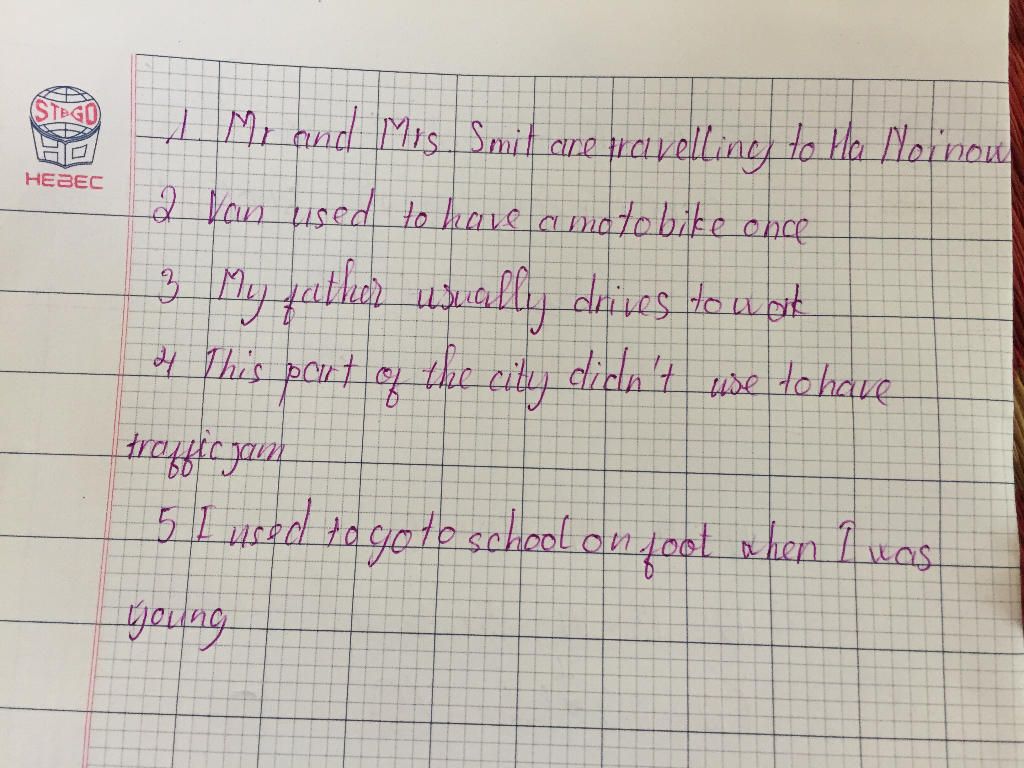 STEGO
HEBEC
1 Mr and Mrs. Smit are travelling to Ha Noi now
2 Van used to have a motobike once
3 My father usually drives to wok
4 This part of the city didn't use to have
traffic jam
5 I used to go to school on foot when I was
young